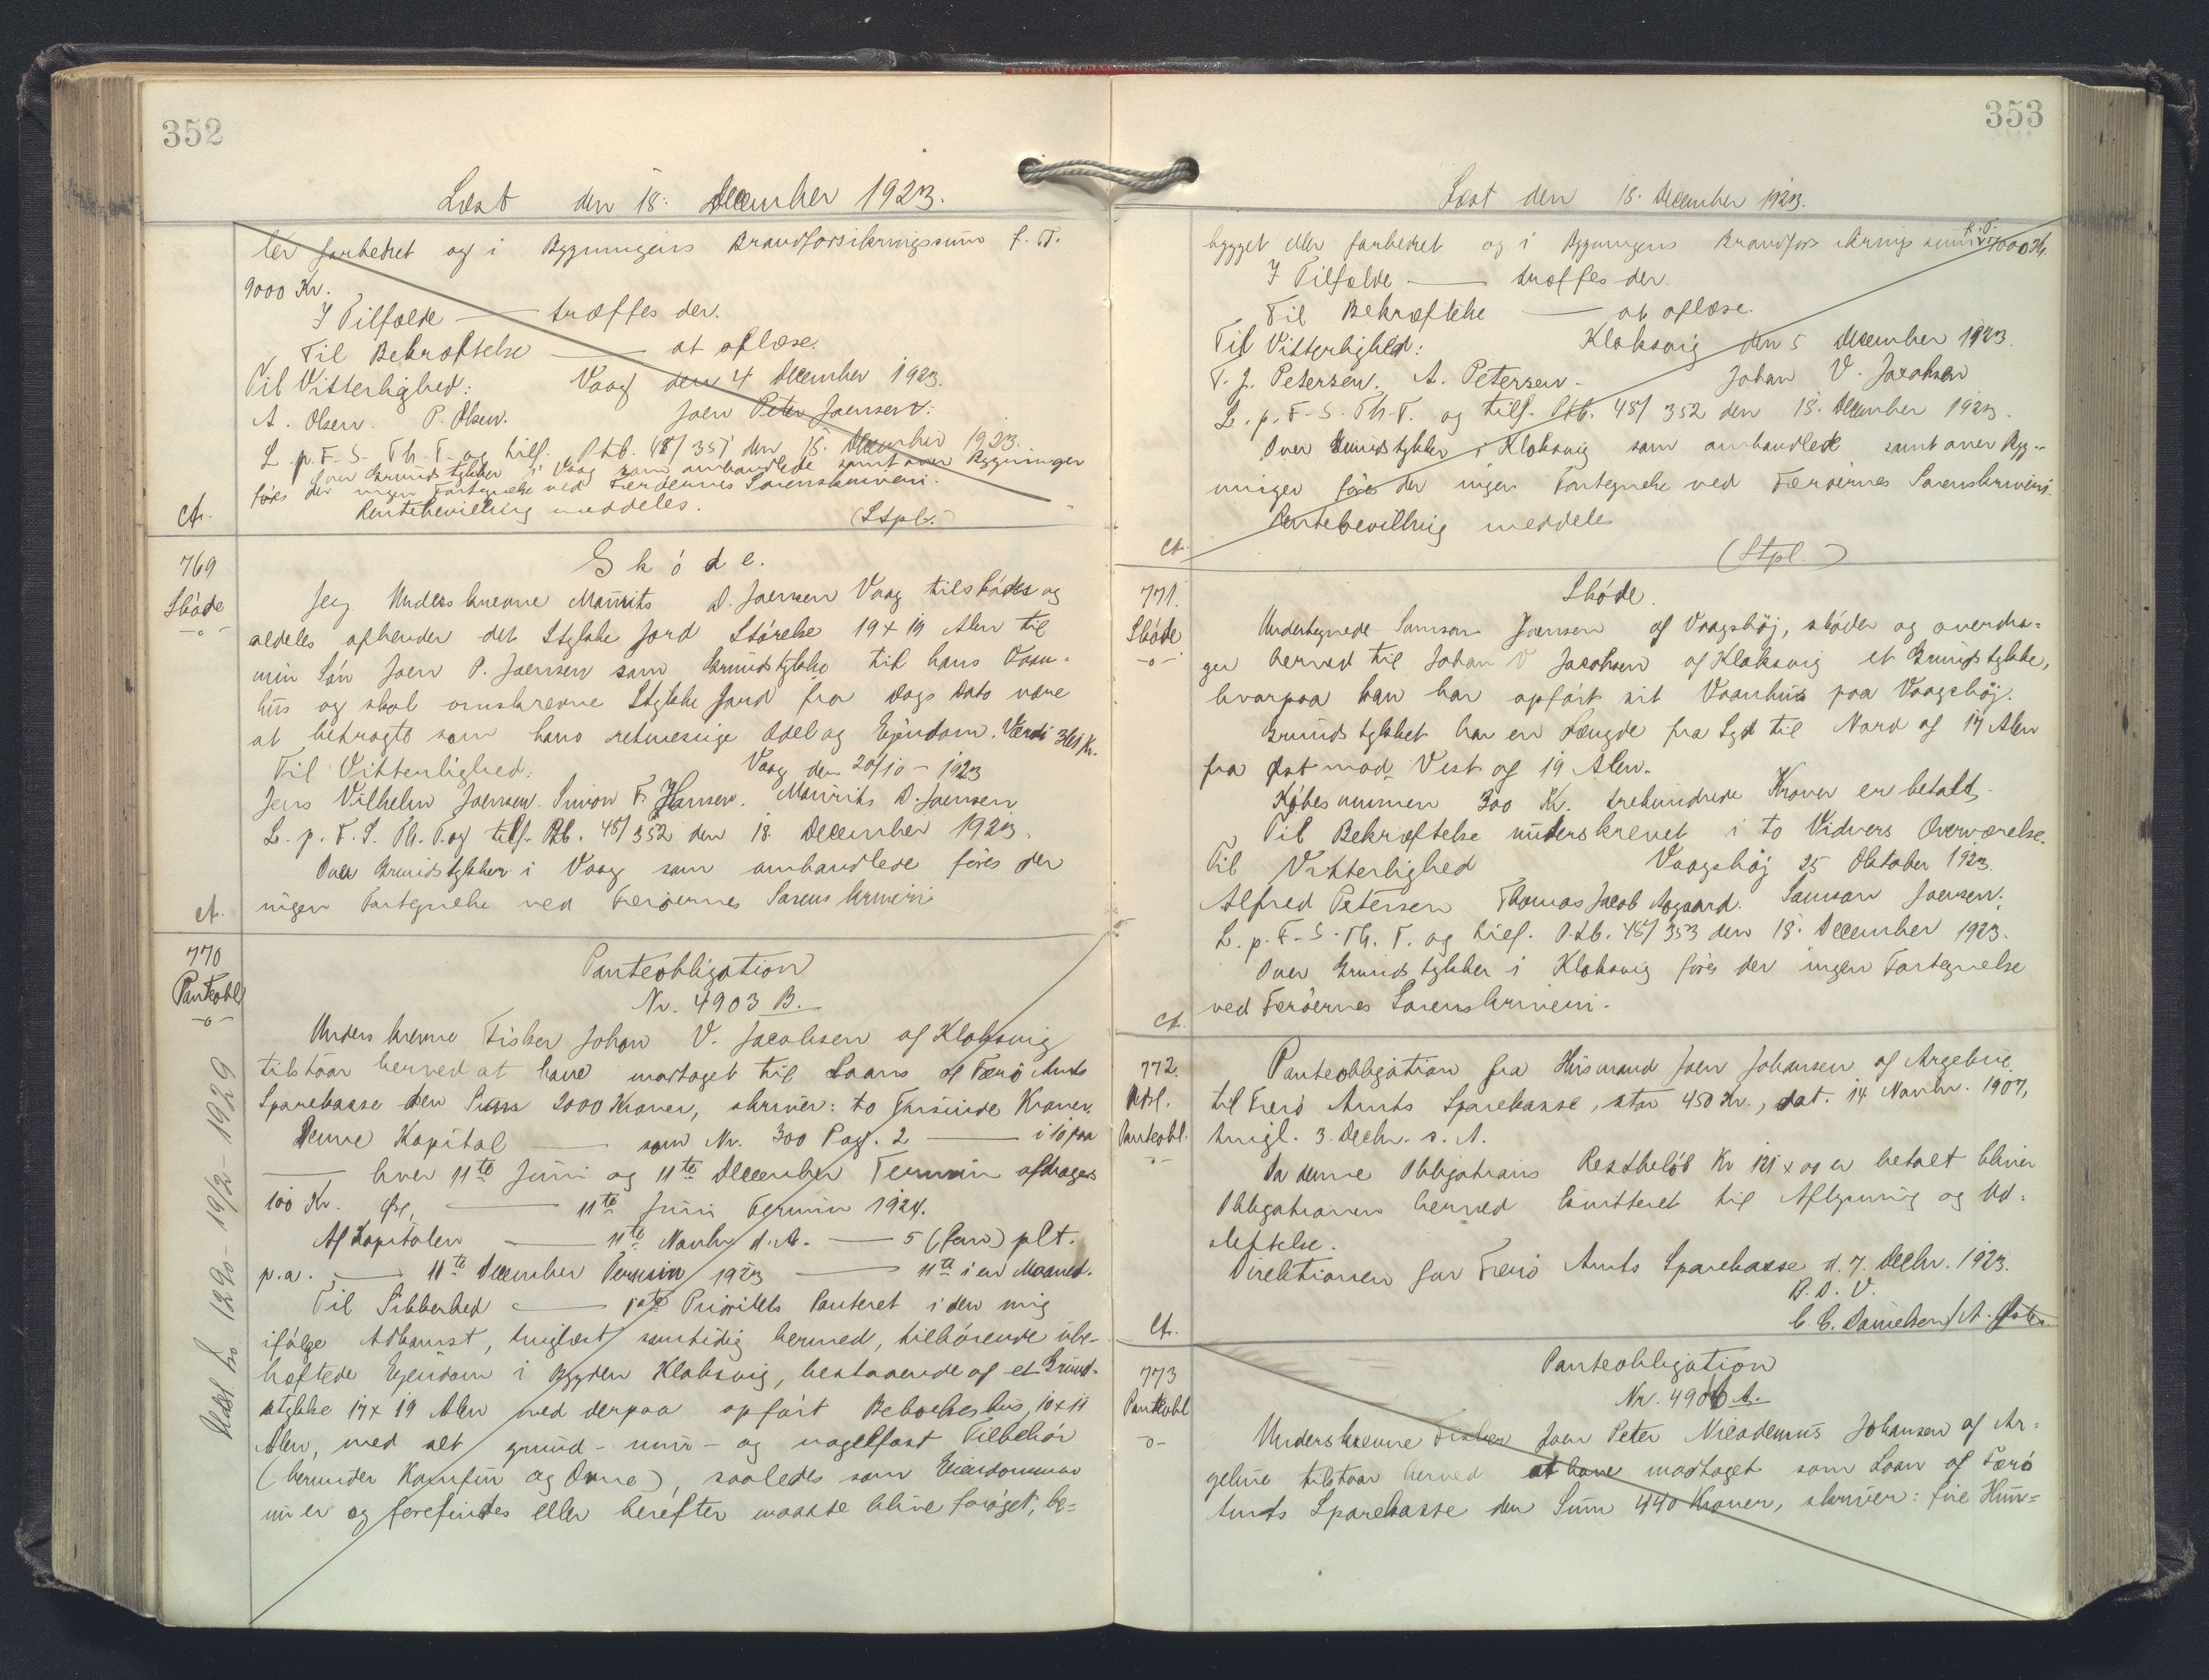 352
Læst den 18. December 1923.
ler forbedret og i Bygningens Brandforsikringssum f. T.
9000 Kr.
I Tilfælde — træffes der.
Til Bekræftelse — at oplæse.
Til Vitterlighed: Vaag den 4 December 1923.
A. Olsen. P. Olsen. Joen Peter Joensen.
L. p. F. S. Th. T. og tilf. Ptb. 48/351 den 18. December 1923.
Over Grundstykker i Vaag som omhandlede samt over Bygninger
føres der ingen Fortegnelse ved Færøernes Sorenskriveri.
Rentebevilling meddeles. (Stpl.)
769
Skøde
Skøde.
Jeg Underskrevne Maurits D. Joensen Vaag tilskøder og
aldeles afhender det Stykke Jord Størelse 19 x 19 Alen til
min Søn Joen P. Joensen som Grundstykke til hans Vaan-
hus og skal omskrevne Stykke Jord fra Dags Dato være
at betragte som hans retmesige Odel og Ejendom. Værdi 361 Kr.
Til Vitterlighed: Vaag den 20/10 - 1923
Jens Vilhelm Joensen. Simon F. Hansen. Maurits D. Joensen
L. p. F. S. Th. T. og tilf. Ptb. 48/352 den 18. December 1923.
Over Grundstykker i Vaag som omhandlede føres der
ingen Fortegnelse ved Færøernes Sorenskriveri
770
Panteobl.
Panteobligation
Nr. 4903 B.
Underskrevne Fisker Johan V. Jacobsen af Klaksvig
tilstaar herved at have modtaget til Laans af Færø Amts
Sparekasse den Sum 2000 Kroner, skriver: to Tusinde Kroner.
Denne Kapital — som Nr. 300 Pag. 2 — i 10 paa
— hver 11te Juni og 11te December Termin afdrages
100 Kr. — 11te Juni Termin 1924.
Af Kapitalen — 11te Novbr. d. A. — 5 (fem) pCt.
p.a. — 11te December Termin 1923 — 11te i en Maaned.
Til Sikkerhed — 1ste Prioritets Panteret i den mig
ifølge Adkomst, tinglæst samtidig hermed, tilhørende ube-
hæftede Ejendom i Bygden Klaksvig, bestaaende af et Grund-
stykke 17 x 19 Alen med derpaa opført Beboelseshus, 10 x 11
Alen, med alt grund- mur- og nagelfast Tilbehør
(herunder Komfur og Ovne), saaledes som Ejendommen
nu er og forefindes eller herefter maatte blive forøget, be-
Udslet fro 1290 - 19/2 - 1929
353
Læst den 18. December 1923.
bygget eller forbedret og i Bygningens Brandforsikringssum f. T. 7000 Kr.
I Tilfælde — træffes der.
Til Bekræftelse — at oplæse.
Til Vitterlighed: Klaksvig den 5 December 1923.
T. J. Petersen. A. Petersen. Johan V. Jacobsen
L. p. F. S. Th. T. og tilf. Ptb. 48/352 den 18. December 1923.
Over Grundstykker i Klaksvig som omhandlede samt over Byg-
ninger føres der ingen Fortegnelse ved Færøernes Sorenskriveri.
Rentebevilling meddeles
(Stpl.)
771.
Skøde
Skøde.
Undertegnede Samson Joensen af Vaagshøj, skøder og overdra-
ger herved til Johan V Jacobsen af Klaksvig et Grundstykke,
hvorpaa han har opført sit Vaanhus paa Vaagshøj.
Grundstykket har en Længde fra Syd til Nord af 17 Alen
fra Øst mod Vest af 19 Alen.
Købesummen 300 Kr. trehundrede Kroner er betalt.
Til Bekræftelse underskrevet i to Vidners Overværelse.
Til Vitterlighed Vaagshøj 25 Oktober 1923.
Alfred Petersen Thomas Jacob Aagaard. Samson Joensen.
L. p. F. S. Th. T. og tilf. Ptb. 48/353 den 18. December 1923.
Over Grundstykker i Klaksvig føres der ingen Fortegnelse
ved Færøernes Sorenskriveri.
772.
Udsl.
Panteobl.
Panteobligation fra Husmand Joen Johansen af Argebue
til Færø Amts Sparekasse, stor 450 Kr., dat. 14 Novbr. 1907,
tingl. 3. Decbr. s. A.
Da denne Obligations Restbeløb Kr 121 x 00 er betalt bliver
Obligationen herved kvitteret til Aflysning og Ud-
slettelse.
Direktionen for Færø Amts Sparekasse d. 7. Decbr. 1923.
P. D. V.
C. C. Danielsen
773
Panteobl
Panteobligation
Nr. 4906 A.
Underskrevne Fisker Joen Peter Nicodemus Johansen af Ar-
gebue tilstaar herved at have modtaget som Laan af Færø
Amts Sparekasse den Sum 440 Kroner, skriver: fire Hun-